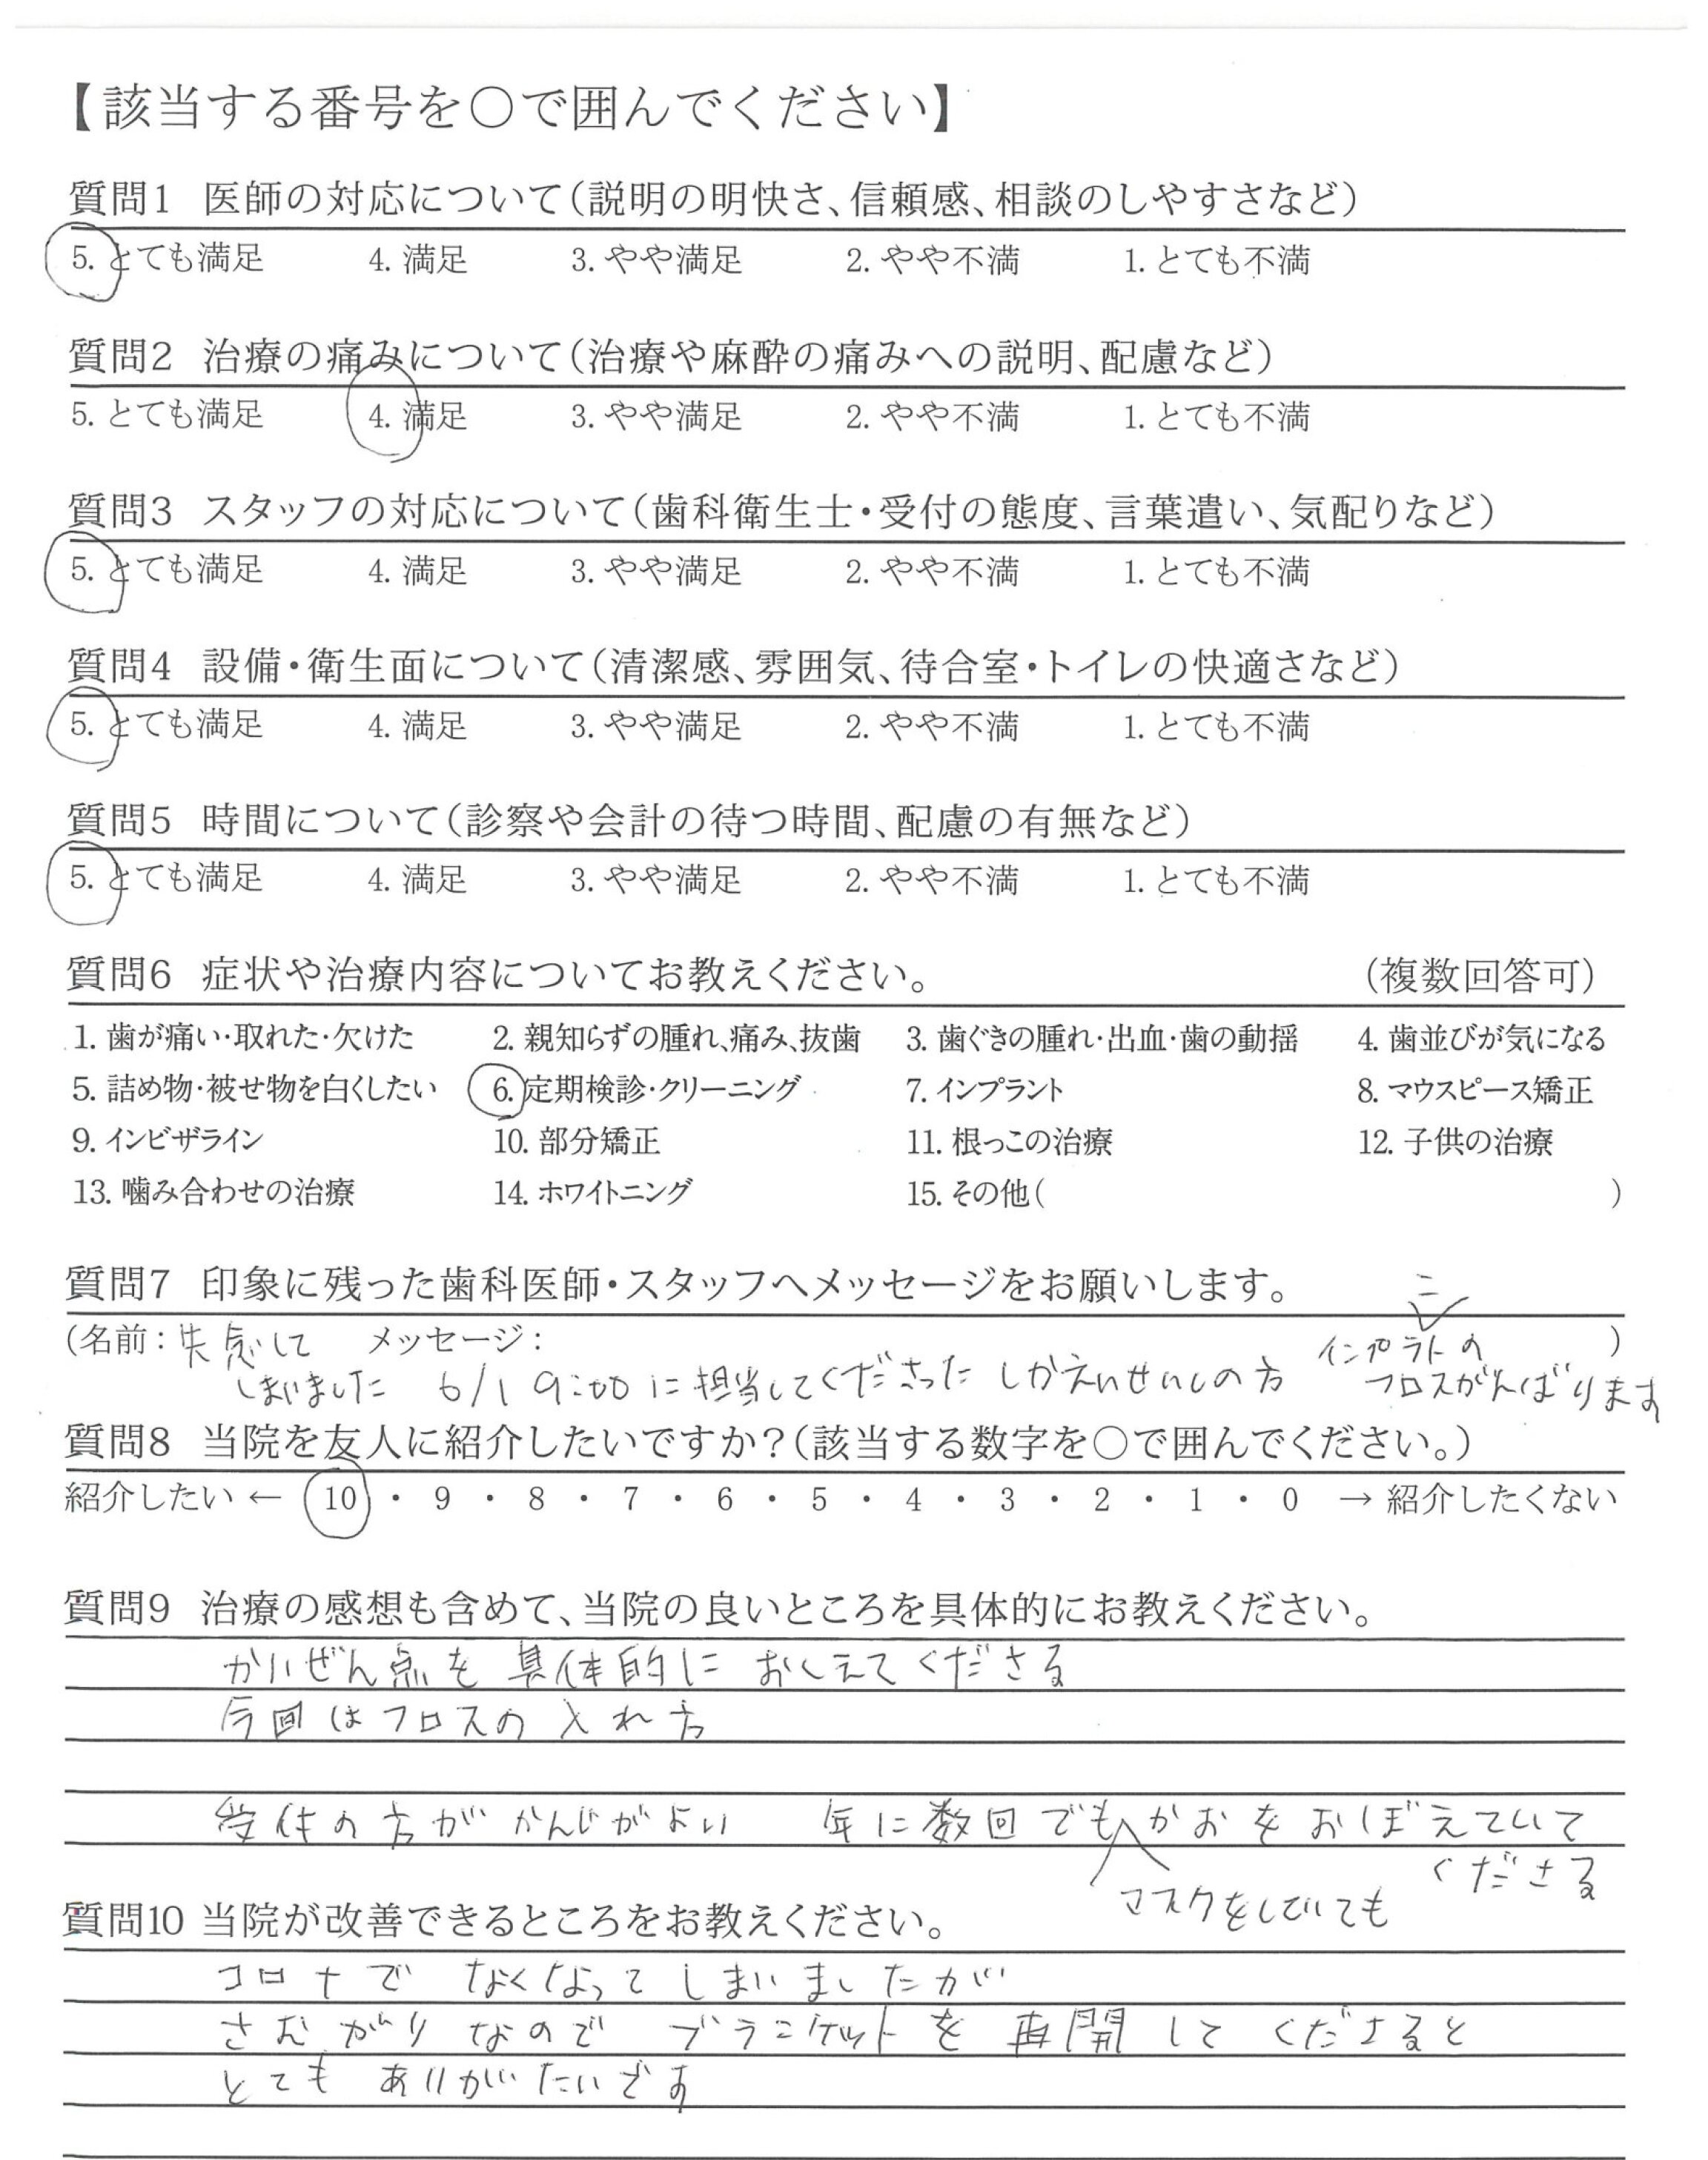 【該当する番号を○で囲んでください】
質問1 医師の対応について(説明の明快さ、信頼感、相談のしやすさなど)
5. とても満足 4. 満足 3. やや満足 2. やや不満 1. とても不満
質問2 治療の痛みについて(治療や麻酔の痛みへの説明、配慮など)
5. とても満足 4. 満足 3. やや満足 2. やや不満 1. とても不満
質問3 スタッフの対応について(歯科衛生士・受付の態度、言葉遣い、気配りなど)
5. とても満足 4. 満足 3. やや満足 2. やや不満 1. とても不満
質問4 設備・衛生面について(清潔感、雰囲気、待合室・トイレの快適さなど)
5. とても満足 4. 満足 3. やや満足 2. やや不満 1. とても不満
質問5 時間について(診察や会計の待つ時間、配慮の有無など)
5. とても満足 4. 満足 3. やや満足 2. やや不満 1. とても不満
質問6 症状や治療内容についてお教えください。 (複数回答可)
1. 歯が痛い・取れた・欠けた 2. 親知らずの腫れ、痛み、抜歯 3. 歯ぐきの腫れ・出血・歯の動揺 4. 歯並びが気になる
5. 詰め物・被せ物を白くしたい 6. 定期検診・クリーニング 7. インプラント 8. マウスピース矯正
9. インビザライン 10. 部分矯正 11. 根っこの治療 12. 子供の治療
13. 噛み合わせの治療 14. ホワイトニング 15. その他( )
質問7 印象に残った歯科医師・スタッフへメッセージをお願いします。
(名前: 失念して メッセージ: インプラトの )
しまいました 6/1 9:00に担当してくださった しかえいせいしの方 フロスがんばります
質問8 当院を友人に紹介したいですか?(該当する数字を○で囲んでください。)
紹介したい ← 10 ・ 9 ・ 8 ・ 7 ・ 6 ・ 5 ・ 4 ・ 3 ・ 2 ・ 1 ・ 0 → 紹介したくない
質問9 治療の感想も含めて、当院の良いところを具体的にお教えください。
かいぜん点を 具体的に おしえてくださる
今回はフロスの入れ方
受付の方が かんじがよい 年に数回でも かおをおぼえていて
くださる
マスクをしていても
質問10 当院が改善できるところをお教えください。
コロナで なくなってしまいましたが
さむがりなので ブランケットを 再開して くださると
とても ありがたいです